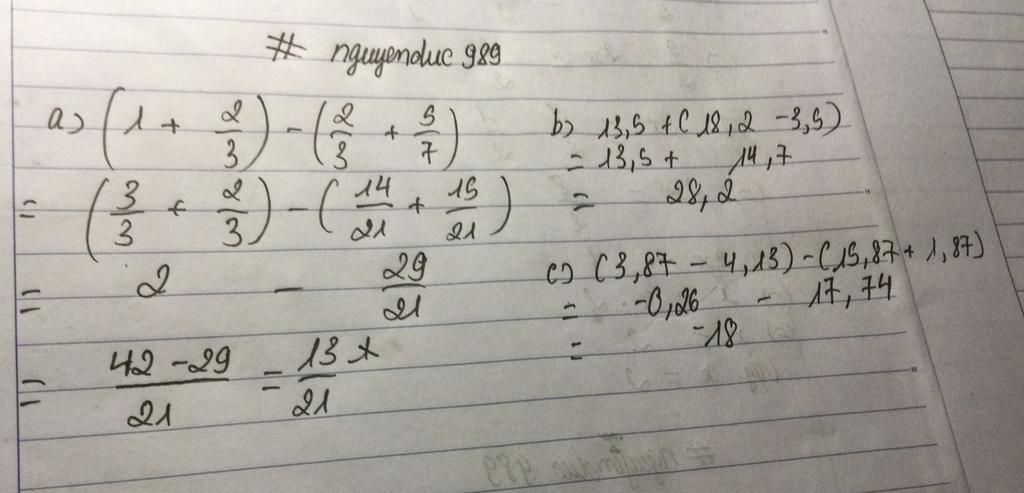 # nguyenduc 989
a) (1 + 2/3) - (2/3 + 5/7)
= (3/3 + 2/3) - (14/21 + 15/21)
= 2 - 29/21
= 42 - 29/21 = 13/21 *
b) 13,5 + (18,2 - 3,5)
= 13,5 + 14,7
= 28,2
c) (3,87 - 4,13) - (15,87 + 1,87)
= -0,26 - 17,74
= -18